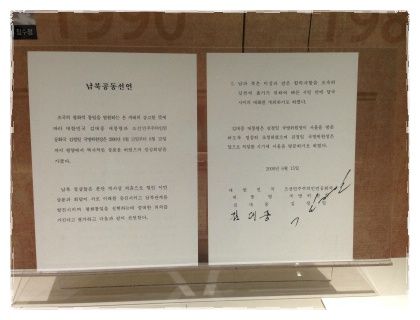 1990
198
남북공동선언
조국의 평화적 통일을 염원하는 온 겨레의 숭고한 뜻에
따라 대한민국 김대중 대통령과 조선민주주의인민
공화국 김정일 국방위원장은 2000년 6월 13일부터 6월 15일
까지 평양에서 역사적인 상봉을 하였으며 정상회담을
가졌다.
남북 정상들은 분단 역사상 처음으로 열린 이번
상봉과 회담이 서로 이해를 증진시키고 남북관계를
발전시키며 평화통일을 실현하는데 중대한 의의를
가진다고 평가하고 다음과 같이 선언한다.
5. 남과 북은 이상과 같은 합의사항을 조속히
실천에 옮기기 위하여 빠른 시일 안에 당국
사이의 대화를 개최하기로 하였다.
김대중 대통령은 김정일 국방위원장이 서울을 방문
하도록 정중히 초청하였으며 김정일 국방위원장은
앞으로 적절한 시기에 서울을 방문하기로 하였다.
2000년 6월 15일
대 한 민 국 조선민주주의인민공화국
대 통 령 국 방 위 원 장
김 대 중 김 정 일
김대중